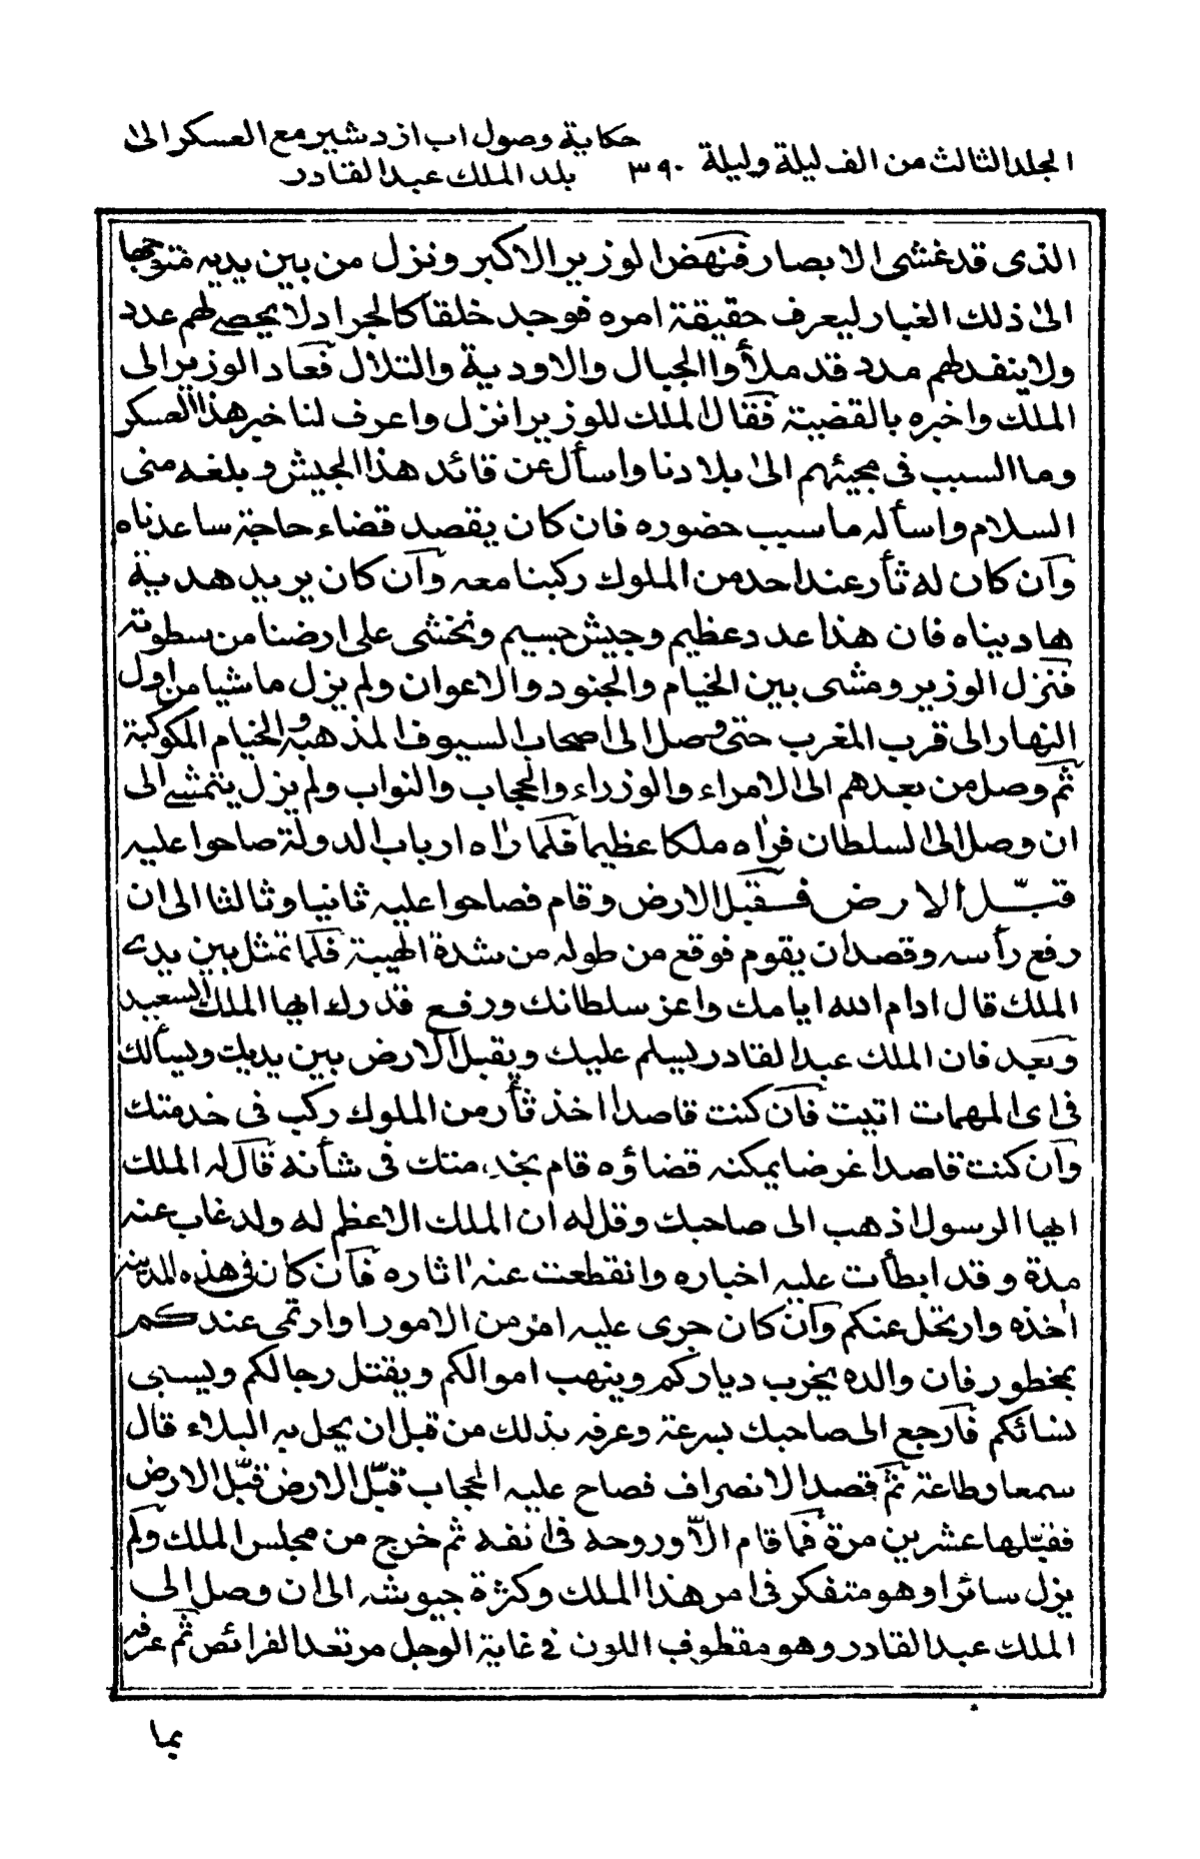 المجلد الثالث من الف ليلة وليلة ٣٩٠ حكاية وصول اب ازدشير مع العسكر الى
بلد الملك عبد القادر
الذى قد غشى الابصار فنهض الوزير الاكبر ونزل من بين يديه متوجها
الى ذلك الغبار ليعرف حقيقة امره فوجد خلقا كالجراد لا يحصے لهم عدد
ولا ينفد لهم مدد قد ملأوا الجبال والاودية والتلال فعاد الوزير الى
الملك واخبره بالقضية فقال الملك للوزير انزل واعرف لنا خبر هذا العسكر
وما السبب فى مجيئهم الى بلادنا واسأل عن قائد هذا الجيش وبلغه منى
السلام واسأله ما سبب حضوره فان كان يقصد قضاء حاجة ساعدناه
وان كان له ثأر عند احد من الملوك ركبنا معه وان كان يريد هدية
هاديناه فان هذا عدد عظيم وجيش جسيم ونخشى على ارضنا من سطوته
فنزل الوزير ومشى بين الخيام والجنود والاعوان ولم يزل ماشيا من اول
النهار الى قرب المغرب حتى وصل الى اصحاب السيوف المذهبة والخيام المكوكبة
ثم وصل من بعدهم الى الامراء والوزراء والحجاب والنواب ولم يزل يتمشے الى
ان وصل الى السلطان فرأه ملكا عظيما فلما رأه ارباب الدولة صاحوا عليه
قبّل الارض فقبل الارض وقام فصاحوا عليه ثانيا وثالثا الى ان
رفع رأسه وقصد ان يقوم فوقع من طوله من شدة الهيبة فلما تمثل بين يدے
الملك قال ادام الله ايامك واعز سلطانك ورفع قدرك ايها الملك السعيد
وبعد فان الملك عبد القادر يسلم عليك ويقبل الارض بين يديك ويسألك
فى اى المهمات اتيت فان كنت قاصدا اخذ ثأر من الملوك ركب فى خدمتك
وان كنت قاصدا غرضا يمكنه قضاؤه قام بخدمتك فى شأنه قال له الملك
ايها الرسول اذهب الى صاحبك وقل له ان الملك الاعظم له ولد غاب عنه
مدة وقد ابطأت عليه اخباره وانقطعت عنه اثاره فان كان فى هذه المدينة
اخذه وارتحل عنكم وان كان جرى عليه امر من الامور او ارتمى عندكم
بمخطور فان والده يخرب دياركم وينهب اموالكم ويقتل رجالكم ويسبى
نسائكم فارجع الى صاحبك بسرعة وعرفه بذلك من قبل ان يحل به البلاء قال
سمعا وطاعة ثم قصد الانصراف فصاح عليه الحجاب قبّل الارض قبّل الارض
فقبّلها عشرين مرة فما قام الاّ وروحه فى انفه ثم خرج من مجلس الملك ولم
يزل سائرا وهو متفكر فى امر هذا الملك وكثرة جيوشه الى ان وصل الى
الملك عبد القادر وهو مقطوف اللون فى غاية الوجل مرتعد الفرائص ثم عرفه
بما